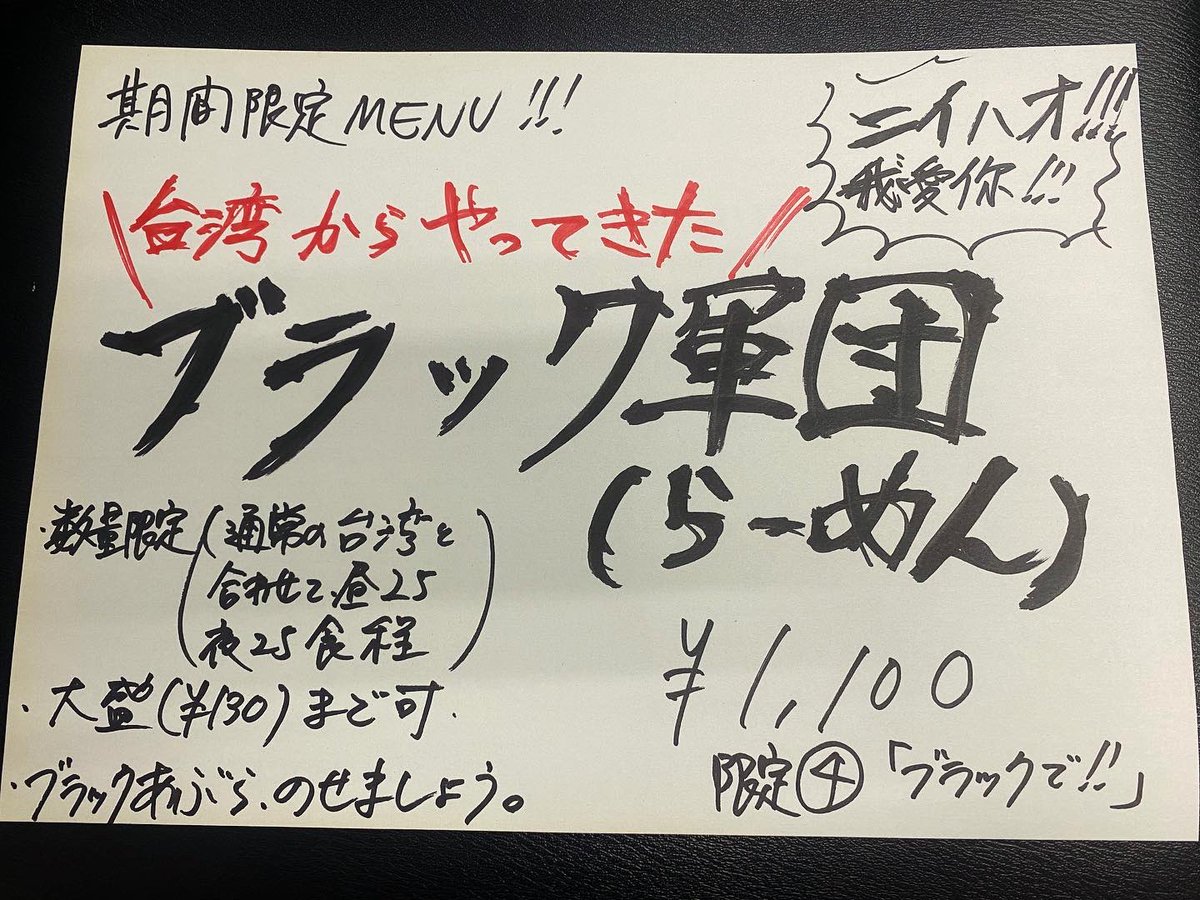 期間限定MENU!!!
ニイハオ!!!
我愛你!!!
台湾からやってきた
ブラック軍団
(らーめん)
・数量限定(通常の台湾と
合わせて、昼25
夜25食程)
・大盛(¥130)まで可.
・ブラックあぶら、のせましょう。
¥1,100
限定④「ブラックで!!」